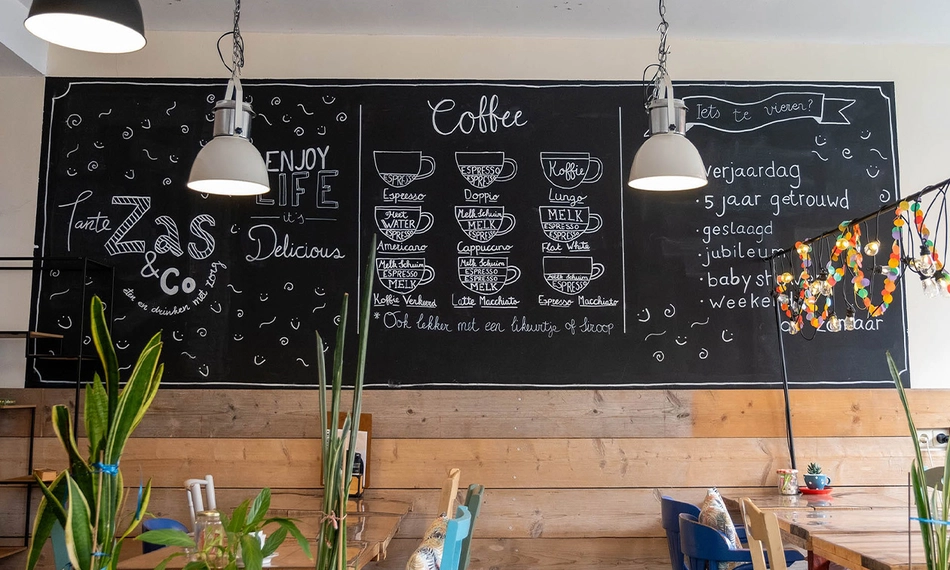 Tante
Zas
& Co
eten en drinken met zorg
ENJOY
LIFE
it's
Delicious
Coffee
ESPRESSO
Espresso
ESPRESSO
ESPRESSO
Doppio
Koffie
Lungo
Heet
WATER
ESPRESSO
Americano
Melk Schuim
MELK
ESPRESSO
Cappuccino
MELK
ESPRESSO
Flat White
Melk Schuim
ESPRESSO
MELK
Koffie Verkeerd
Melk Schuim
ESPRESSO
ESPRESSO
MELK
Latte Macchiato
Melk Schuim
ESPRESSO
Espresso Macchiato
* Ook lekker met een likeurtje of siroop
Iets te vieren?
verjaardag
· 5 jaar getrouwd
· geslaagd
· jubileum
· baby
·